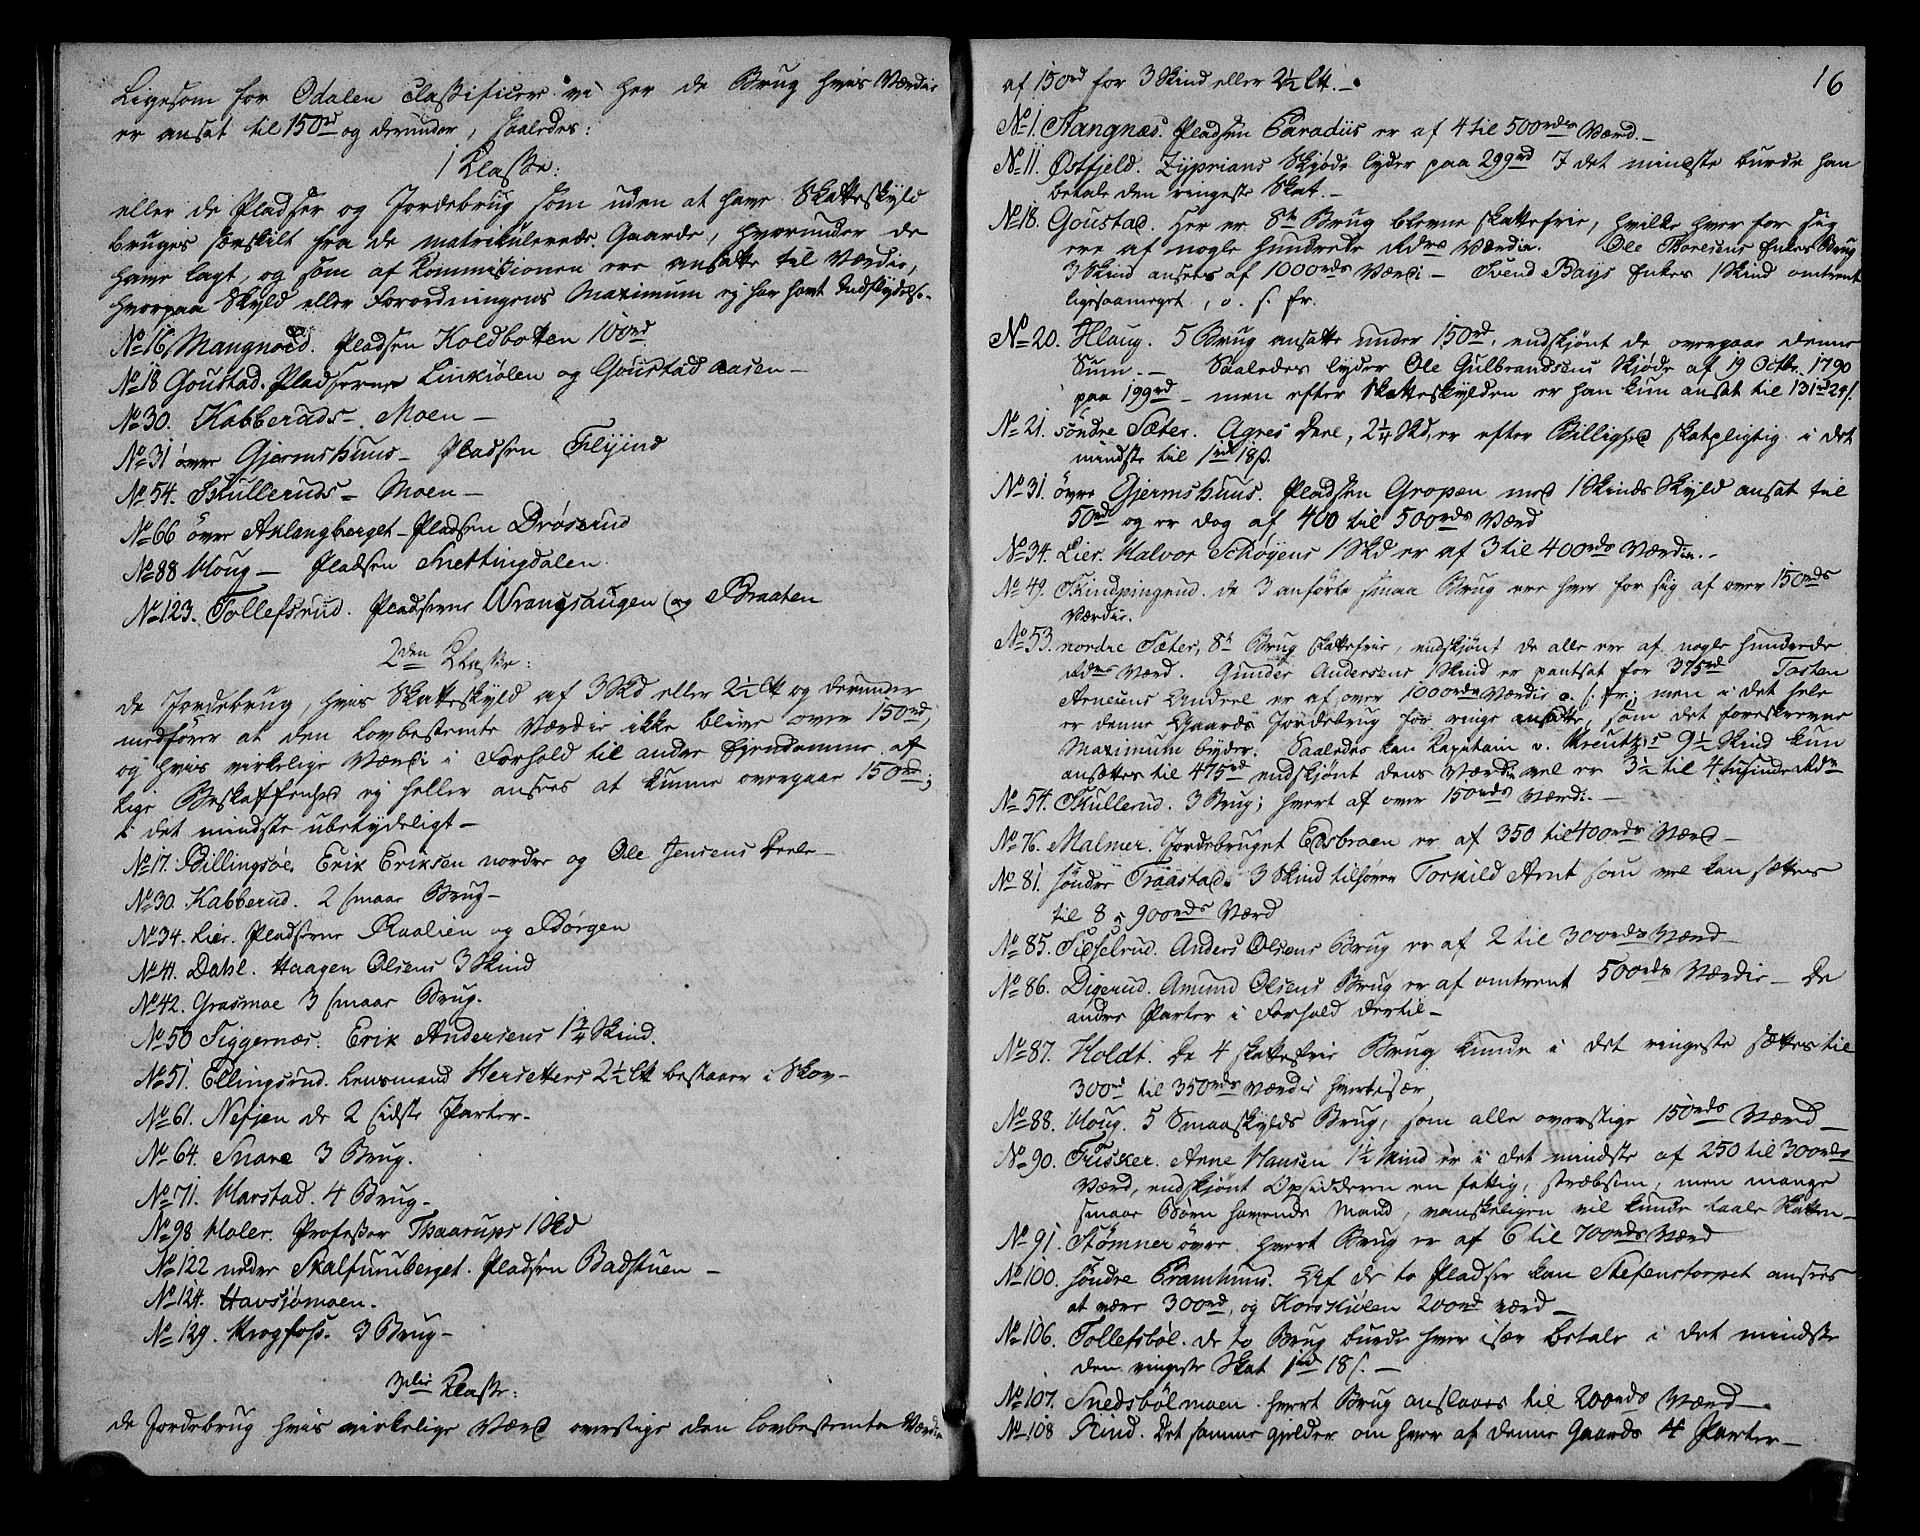 Ligesom for Odalen classificere vi her de Brug hvis Værdie
er ansat til 150rd og derunder, saaledes:
1 Klasse:
eller de Pladser og Jordebrug som uden at have Skatteskyld
bruges særskilt fra de matrikulerede Gaarde, hvorunder de
have lagt, og som af Kommissionen ere ansatte til Værdie,
hvorpaa Skyld eller Forordningens Maximum ej har havt Indflydelse.
No 16 Mangnœd. Pladsen Koldbotten 100rd
No 18 Goustad. Pladserne Linkiölen og Goustad aasen –
No 30. Kabberuds – Moen –
No 31 övre Gjermshuus – Pladsen Flyind
No 54. Skulleruds – Moen –
No 66 övre Axlangberget – Pladsen Dröserud
No 88 Houg – Pladsen Snettingdalen.
No 123. Tollefsrud. Pladserne Wrangsaugen og Braaten
2den Klasse:
de Jordebrug, hvis Skatteskyld af 3 Skd eller 2½ lb og derunder
medförer at den lovbestemte Værdie ikke bliver over 150rd,
og hvis virkelige Værdi i Forhold til andre Ejendomme af
lige Beskaffenhed ej heller ansees at kunne overgaae 150rd;
i det mindste ubetydeligt –
No 17. Billingsöe. Erik Eriksen nordre og Ole Jensens Deele –
No 30. Kabberud. 2 smaae Brug –
No 34. Lier. Pladserne Raalien og Börgen
No 41. Dahl. Haagen Olsens 3 Skind
No 42. Grasmoe 3 smaae Brug.
No 50 Siggernæs. Erik Andersens 1¾ Skind.
No 51. Ellingsrud. Lensmand Hersetters 2½ lb bestaaer i Skov –
No 61. Nefjen de 2 sidste Parter –
No 64. Snare 3 Brug.
No 71. Harstad. 4 Brug –
No 98 Holer. Professor Thaarups 1 Skd
No 122 neder Skalfuruberget. Pladsen Badstuen –
No 124. Havsjömoen.
No 129. Krogfoss. 3 Brug –
3die Klasse:
de Jordebrug hvis virkelige Værd overstige den lovbestemte Værdie
16
af 150rd for 3 Skind eller 2½ lb. –
No 1. Aangnæs. Pladsen Paradiis er af 4 til 500rdrs Værd. –
No 11. Østfjeld. Zyprians Skjøde lyder paa 299rd I det mindste burde han
betale den ringeste Skat. –
No 18. Goustad. Her er 8te Brug blevne skattefrie, hvilke hver for sig
ere af nogle hundrede Rdrs Værdie. Ole Toresens Enkes Brug
3 Skind ansees af 1000rds Værdi – Svend Bays Enkes 1 Skind omtrent
ligesaameget, o. s. fr.
No 20. Hlaug. 5 Brug ansatte under 150rd, endskjönt de overgaae denne
Sum. – Saaledes lyder Ole Gulbrandsens Skjöde af 19 Octbr. 1790
paa 199rd – men efter Skatteskylden er han kun ansat til 131rd 24s.
No 21. söndre Sæter. Agnes Deel, 2¼ Skd, er efter Billighed skatpligtig i det
mindste til 1rd 18s.
No 31. övre Gjermshuus. Pladsen Gropen med 1 Skinds Skyld ansat til
50rd og er dog af 400 til 500rds Værd
No 34. Lier. Halvor Schöyens 1 Skd er af 3 til 400rds Værdie. –
No 49. Skindpingrud. de 3 anförte smaa Brug ere hver for sig af over 150rds
Værdie.
No 53. nordre Sæter, 8te Brug skattefrie, endskjönt de alle ere af nogle hundrede
Rdrs Værd. Gunder Andersens 1 Skind er pantsat for 375rd Tosten
Arnesens Andeel er af over 1000rds Værdie o. s. fr; men i det hele
er denne Gaards Jordebrug for ringe ansatte, som det foreskrevne
Maximum byder. Saaledes kan Kapitain v. Kreutz's 9½ Skind kun
ansættes til 475rd endskjönt dens Værdie vel er 3½ til 4 tusinde Rdr
No 54. Skullerud. 3 Brug; hvert af over 150rds Værdi. –
No 76. Malmer. Jordebruget Edsbroen er af 350 til 400rds Værd –
No 81. söndre Traastad. 3 Skind tilhörer Torkild Arnt som vel kan sættes
til 8 a 900rds Værd
No 85. Sidselrud. Anders Olsens Brug er af 2 til 300rds Værd –
No 86. Digerud. Amund Olsens Brug er af omtrent 500rds Værdie – De
andre Parter i Forhold dertil –
No 87. Holdt. De 4 skattefrie Brug kunde i det ringeste sættes til
300rd til 350rds Værdie hvertisær
No 88. Houg. 5 Smaaskylds Brug, som alle overstige 150rds Værd –
No 90. Frisker. Arne Hansen 1½ Skind er i det mindste af 250 til 300rds
Værd, endskjönt Opsidderen en fattig, stræbsom, men mange
smaae Börn havende Mand, vanskeligen vil kunde taale Skatten –
No 91. Stömner övre. hvert Brug er af 6 til 700rds Værd
No 100. söndre Bramhuus. Af de to Pladser kan Stefenstorpet ansees
at være 300rd, og Korskiölen 200rd værd –
No 106. Tollefsböl. de to Brug burde hver især betale i det mindste
den ringeste Skat 1rd 18s. –
No 107. Snedsbölmoen. hvert Brug anslaaes til 200rds Værd –
No 108 Rind. Det samme gjelder om hver af denne Gaards 4 Parter –